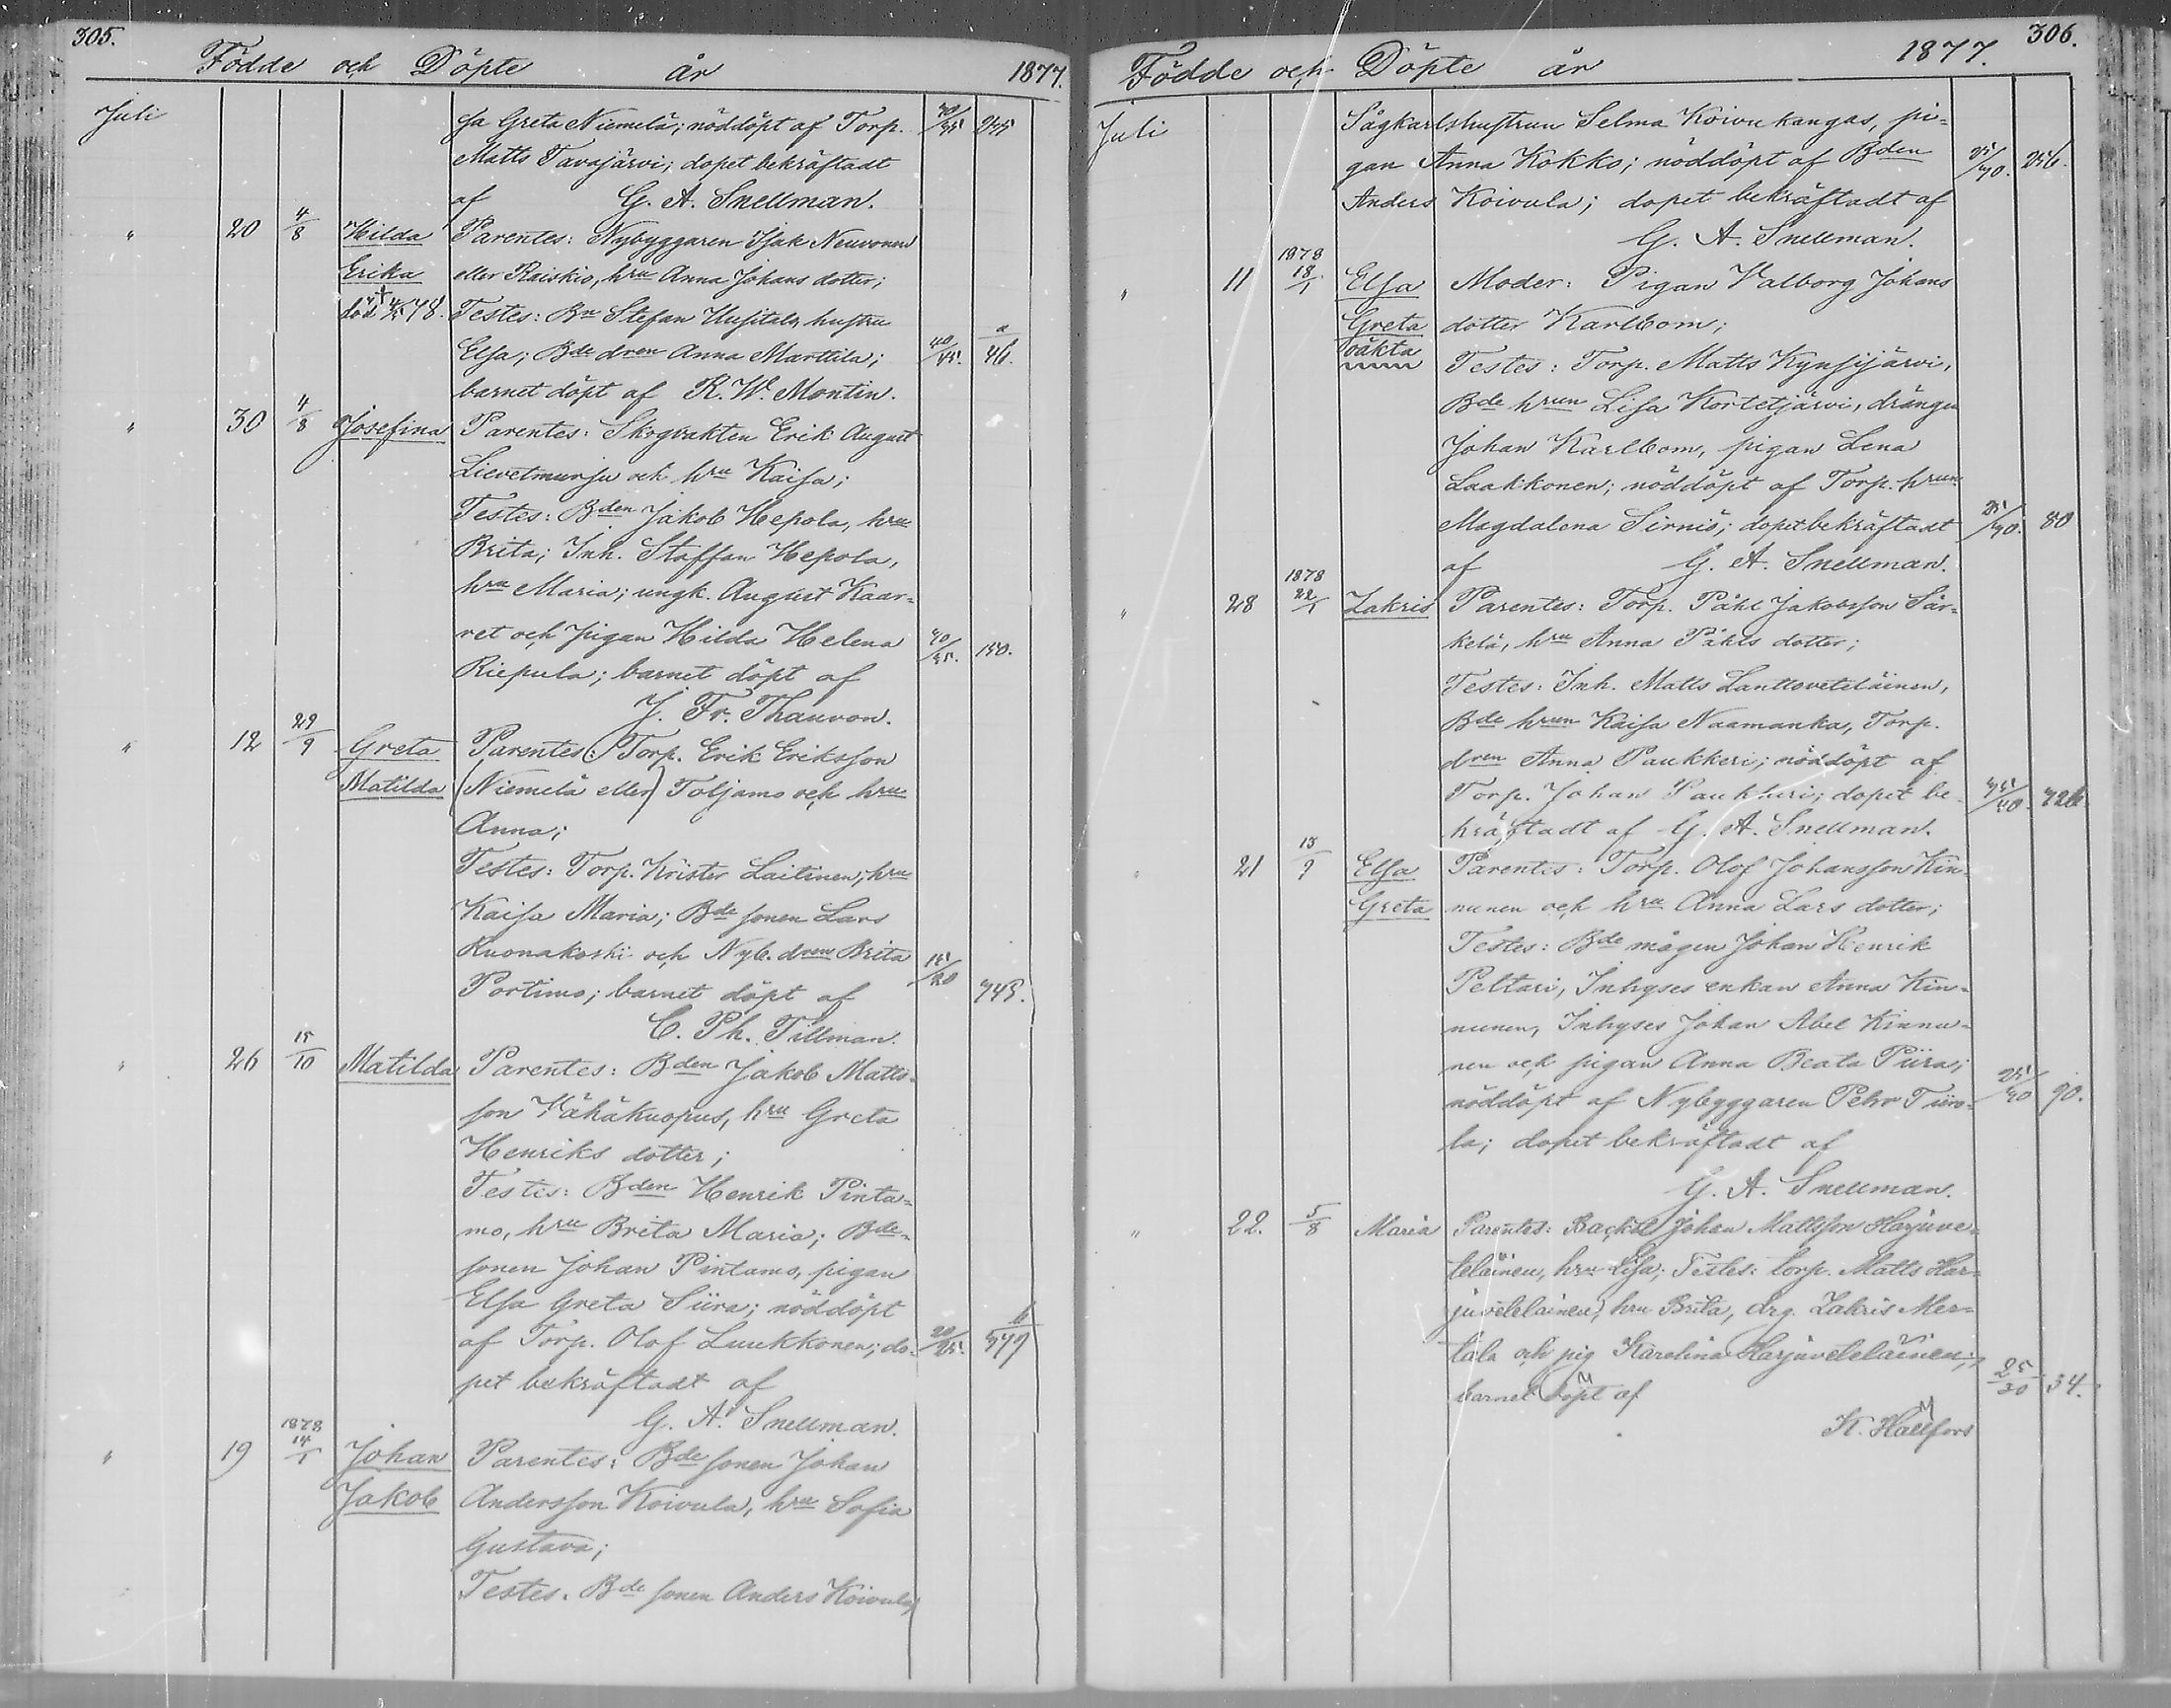 305.
Födde och Döpte år 1877.
Juli
sa Greta Niemelä; nöddöpt af Torp. 40/45 245
Matts Tavajärvi; dopet bekräftadt
af G. A. Snellman.
" 20 4/8 Hilda Parentes: Nybyggaren Isak Neuvonen
Erika eller Raiskio, hru Anna Johans dotter;
död 78. Testes: Bn Stefan Uusitalo, hustru
Elsa; Bde dren Anna Marttila; 40/45. a/46.
barnet döpt af R. W. Montin.
" 30 4/8 Josefina Parentes: Skogvakten Erik August
Lievetmursu och hru Kaisa;
Testes: Bden Jakob Hepola, hru
Brita; Inh. Staffan Hepola,
hru Maria; ungk. August Kaar-
ret och pigan Hilda Helena 40/45. 150.
Riepula; barnet döpt af
J. Fr. Thauvon.
" 12 29/9 Greta Parentes: Torp. Erik Eriksson
Matilda (Niemelä eller) Toljamo och hru
Anna;
Testes: Torp. Krister Laitinen, hru
Kaisa Maria; Bde sonen Lars
Kuonakoski och Nyb. dren Brita 15/20
Portimo; barnet döpt af 743.
C. Ph. Tillman.
" 26 15/10 Matilda Parentes: Bden Jakob Matts-
son Vähäkuopus, hru Greta
Henriks dotter;
Testes: Bden Henrik Pinta-
mo, hru Brita Maria; Bde-
sonen Johan Pintamo, pigan
Elsa Greta Siira; nöddöpt
af Torp. Olof Luukkonen; do- 20/25. b/579
pet bekräftadt af
G. A. Snellman.
1878
" 19 14/1 Johan Parentes: Bde sonen Johan
Jakob Andersson Koivula, hru Sofia
Gustava;
Testes. Bde sonen Anders Koivula,
306.
Födde och Döpte år 1877.
Juli
Sågkarlshustrun Selma Koivukangas, pi-
gan Anna Kokko; nöddöpt af Bden 35/40. 256.
Anders Koivula; dopet bekräftadt af
G. A. Snellman.
1878
" 11 18/1 Elsa Moder: Pigan Valborg Johans
Greta dotter Karlbom;
oäkta Testes: Torp. Matts Kynsijärvi,
Bde hrun Lisa Kortetjärvi, drängen
Johan Karlbom, pigan Lena
Laakkonen; nöddöpt af Torp. hrun
Magdalena Sirniö; dopet bekräftadt 35/40. 80
af G. A. Snellman.
1878
" 28 22/1 Zakris Parentes: Torp. Påhl Jakobsson Sär-
kelä, hru Anna Påhls dotter;
Testes: Inh. Matts Lanttoveteläinen,
Bde hrun Kaisa Naamanka, Torp.
dren Anna Paukkeri; nöddöpt af
Torp. Johan Paukkeri; dopet be- 35/40 726
kräftadt af G. A. Snellman.
" 21 13/9 Elsa Parentes: Torp. Olof Johansson Kin-
Greta nunen och hru Anna Lars dotter;
Testes: Bde mågen Johan Henrik
Peltari, Inhyses enkan Anna Kin-
nunen, Inhyses Johan Abel Kinnu-
nen och pigan Anna Beata Piira;
nöddöpt af Nybyggaren Pehr Tiiro- 35/40 90.
la; dopet bekräftadt af
G. A. Snellman.
" 22. 5/8 Maria Parentes: Backst Johan Mattsson Harjuve-
teläinen, hru Lisa; Testes: torp. Matts Har-
juveteläinen, hru Brita, drg. Zakris Mer-
tala och pig Karolina Harjuveteläinen; 25/30 34.
barnet döpt af
K. Hällfors